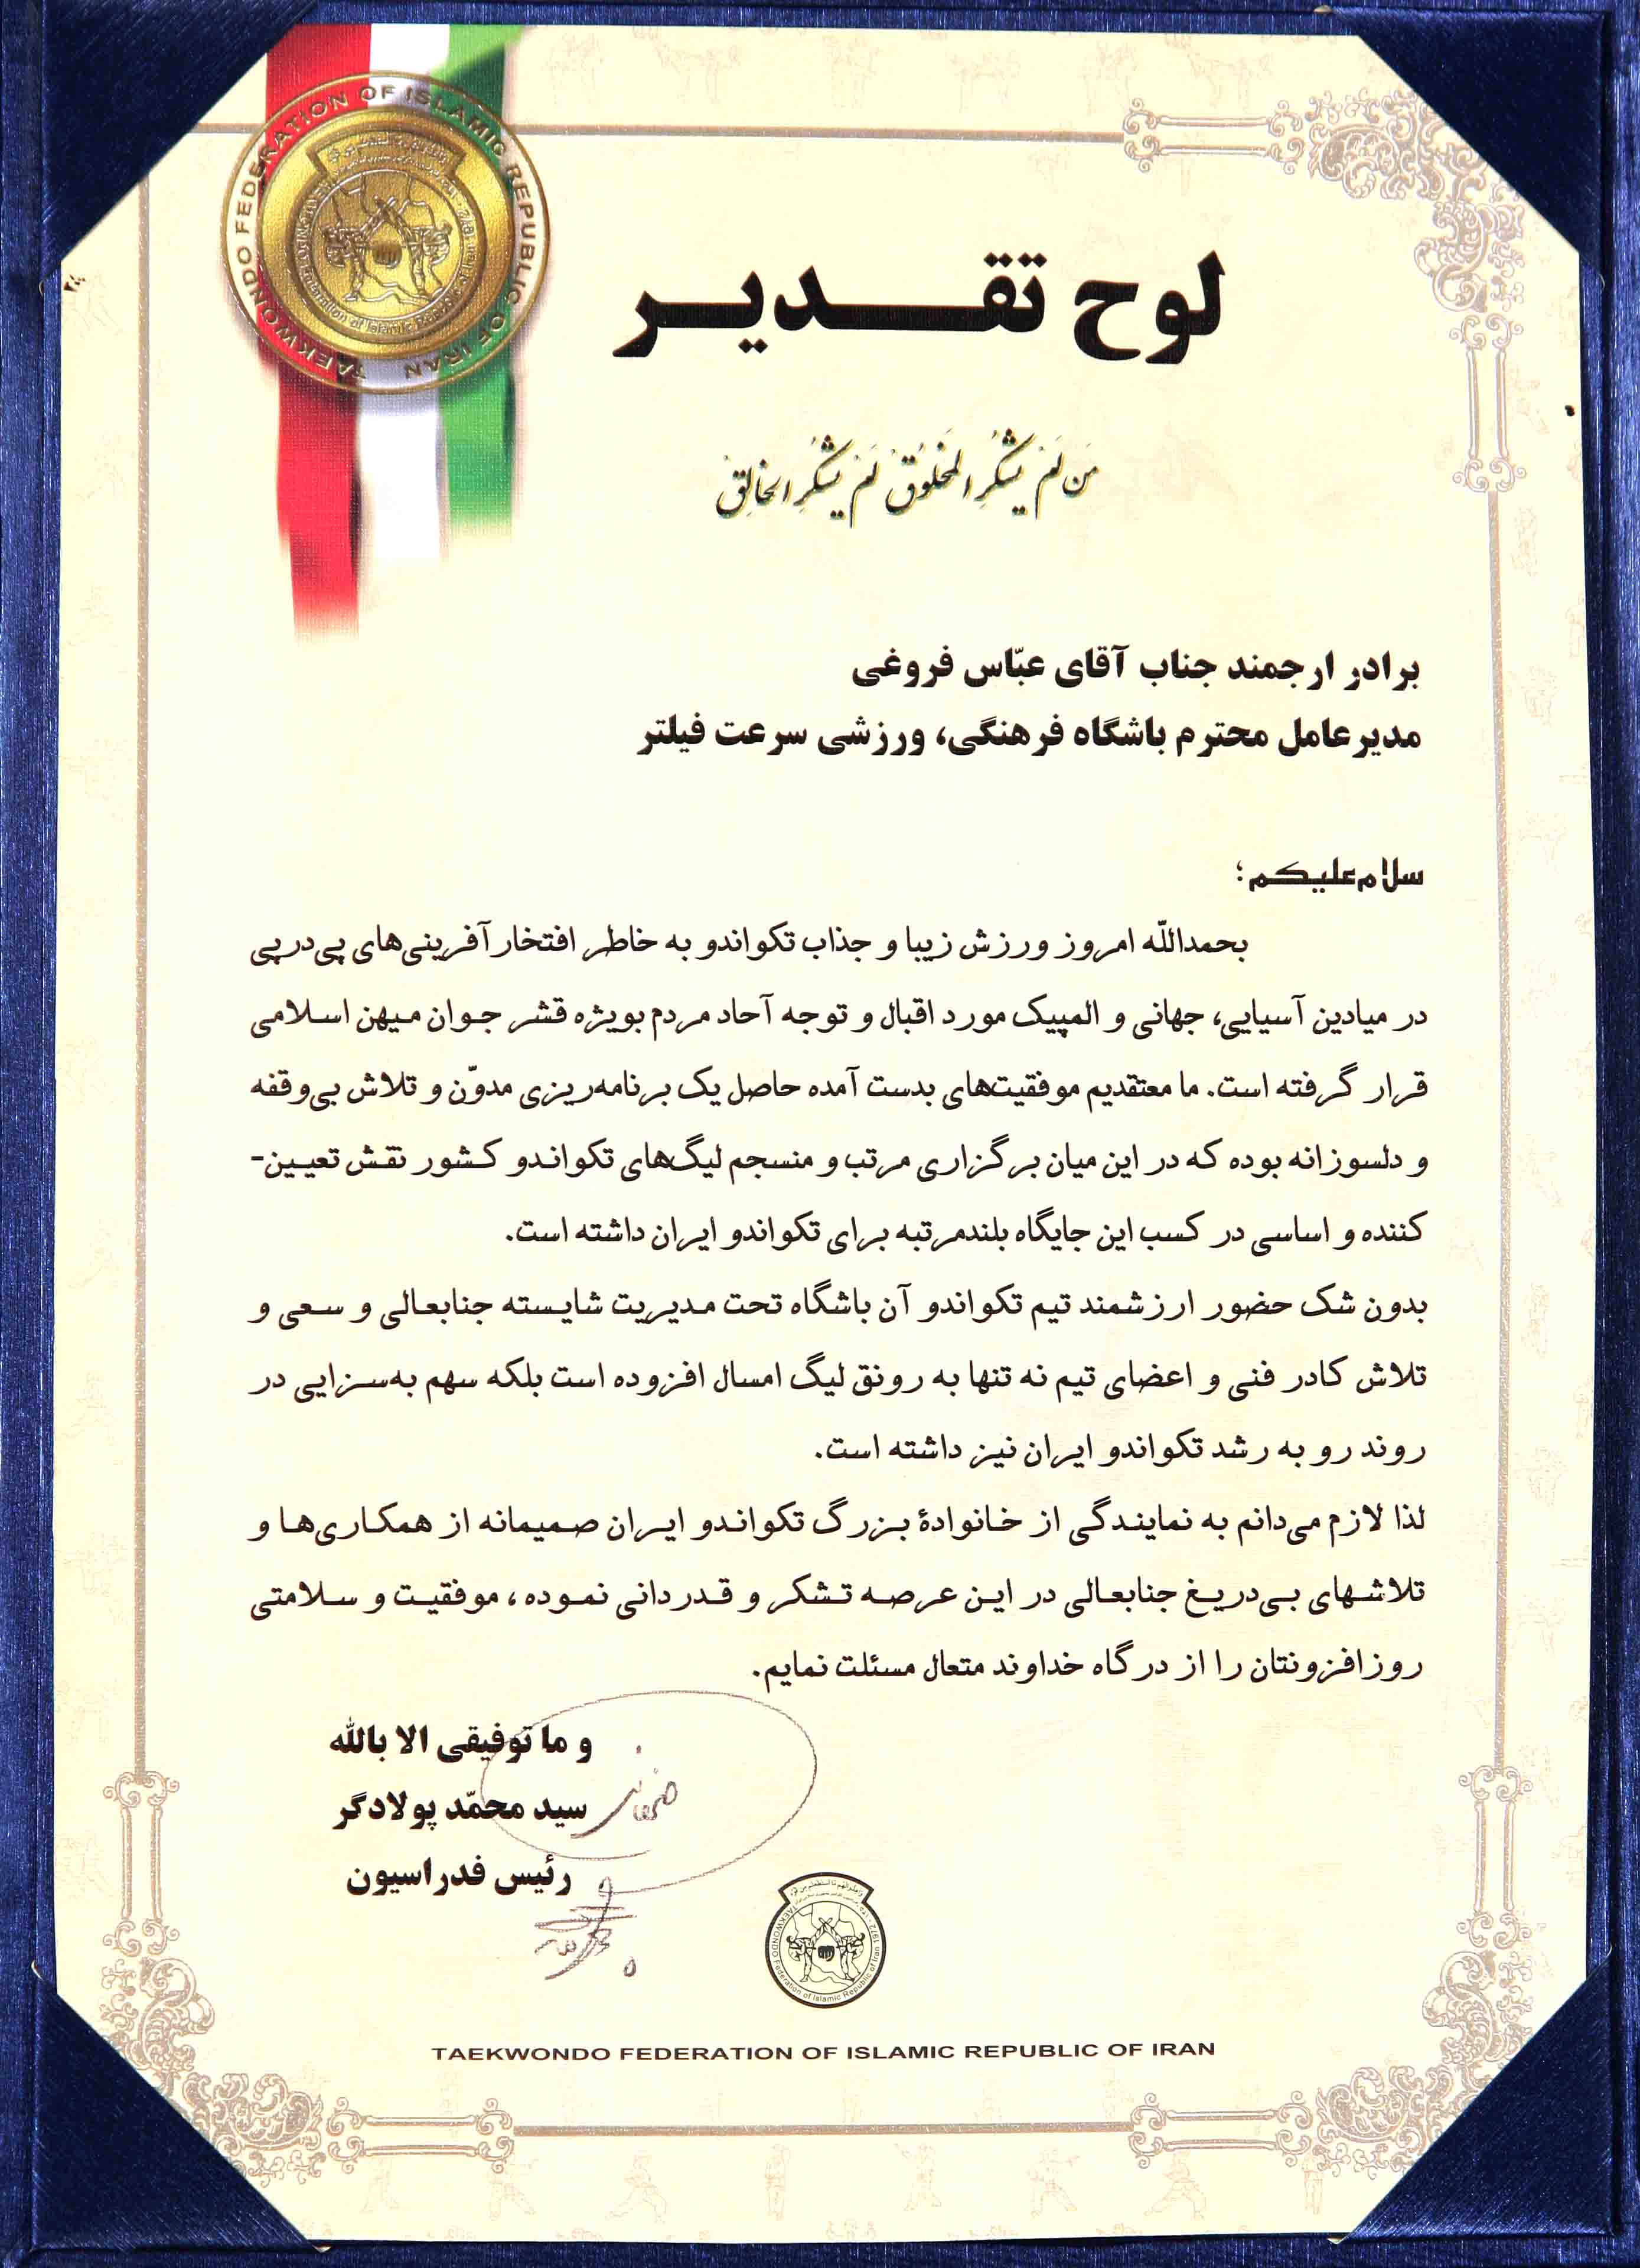 TAEKWONDO FEDERATION OF ISLAMIC REPUBLIC OF IRAN
لوح تقدیر
مَن لَمْ یَشْکُرِ المَخلُوقْ لَمْ یَشْکُرِ الخالِقْ
برادر ارجمند جناب آقای عبّاس فروغی
مدیرعامل محترم باشگاه فرهنگی، ورزشی سرعت فیلتر
سلام‌علیکم؛
بحمداللّه امروز ورزش زیبا و جذاب تکواندو به خاطر افتخارآفرینی‌های پی‌درپی
در میادین آسیایی، جهانی و المپیک مورد اقبال و توجه آحاد مردم بویژه قشر جوان میهن اسلامی
قرار گرفته است. ما معتقدیم موفقیت‌های بدست آمده حاصل یک برنامه‌ریزی مدوّن و تلاش بی‌وقفه
و دلسوزانه بوده که در این میان برگزاری مرتب و منسجم لیگ‌های تکواندو کشور نقش تعیین-
کننده و اساسی در کسب این جایگاه بلندمرتبه برای تکواندو ایران داشته است.
بدون شک حضور ارزشمند تیم تکواندو آن باشگاه تحت مدیریت شایسته جنابعالی و سعی و
تلاش کادر فنی و اعضای تیم نه تنها به رونق لیگ امسال افزوده است بلکه سهم به‌سزایی در
روند رو به رشد تکواندو ایران نیز داشته است.
لذا لازم می‌دانم به نمایندگی از خانوادهٔ بزرگ تکواندو ایران صمیمانه از همکاری‌ها و
تلاشهای بی‌دریغ جنابعالی در این عرصه تشکر و قدردانی نموده، موفقیت و سلامتی
روزافزونتان را از درگاه خداوند متعال مسئلت نمایم.
و ما توفیقی الا بالله
سید محمّد پولادگر
رئیس فدراسیون
TAEKWONDO Federation of Islamic Republic of Iran 1972
TAEKWONDO FEDERATION OF ISLAMIC REPUBLIC OF IRAN